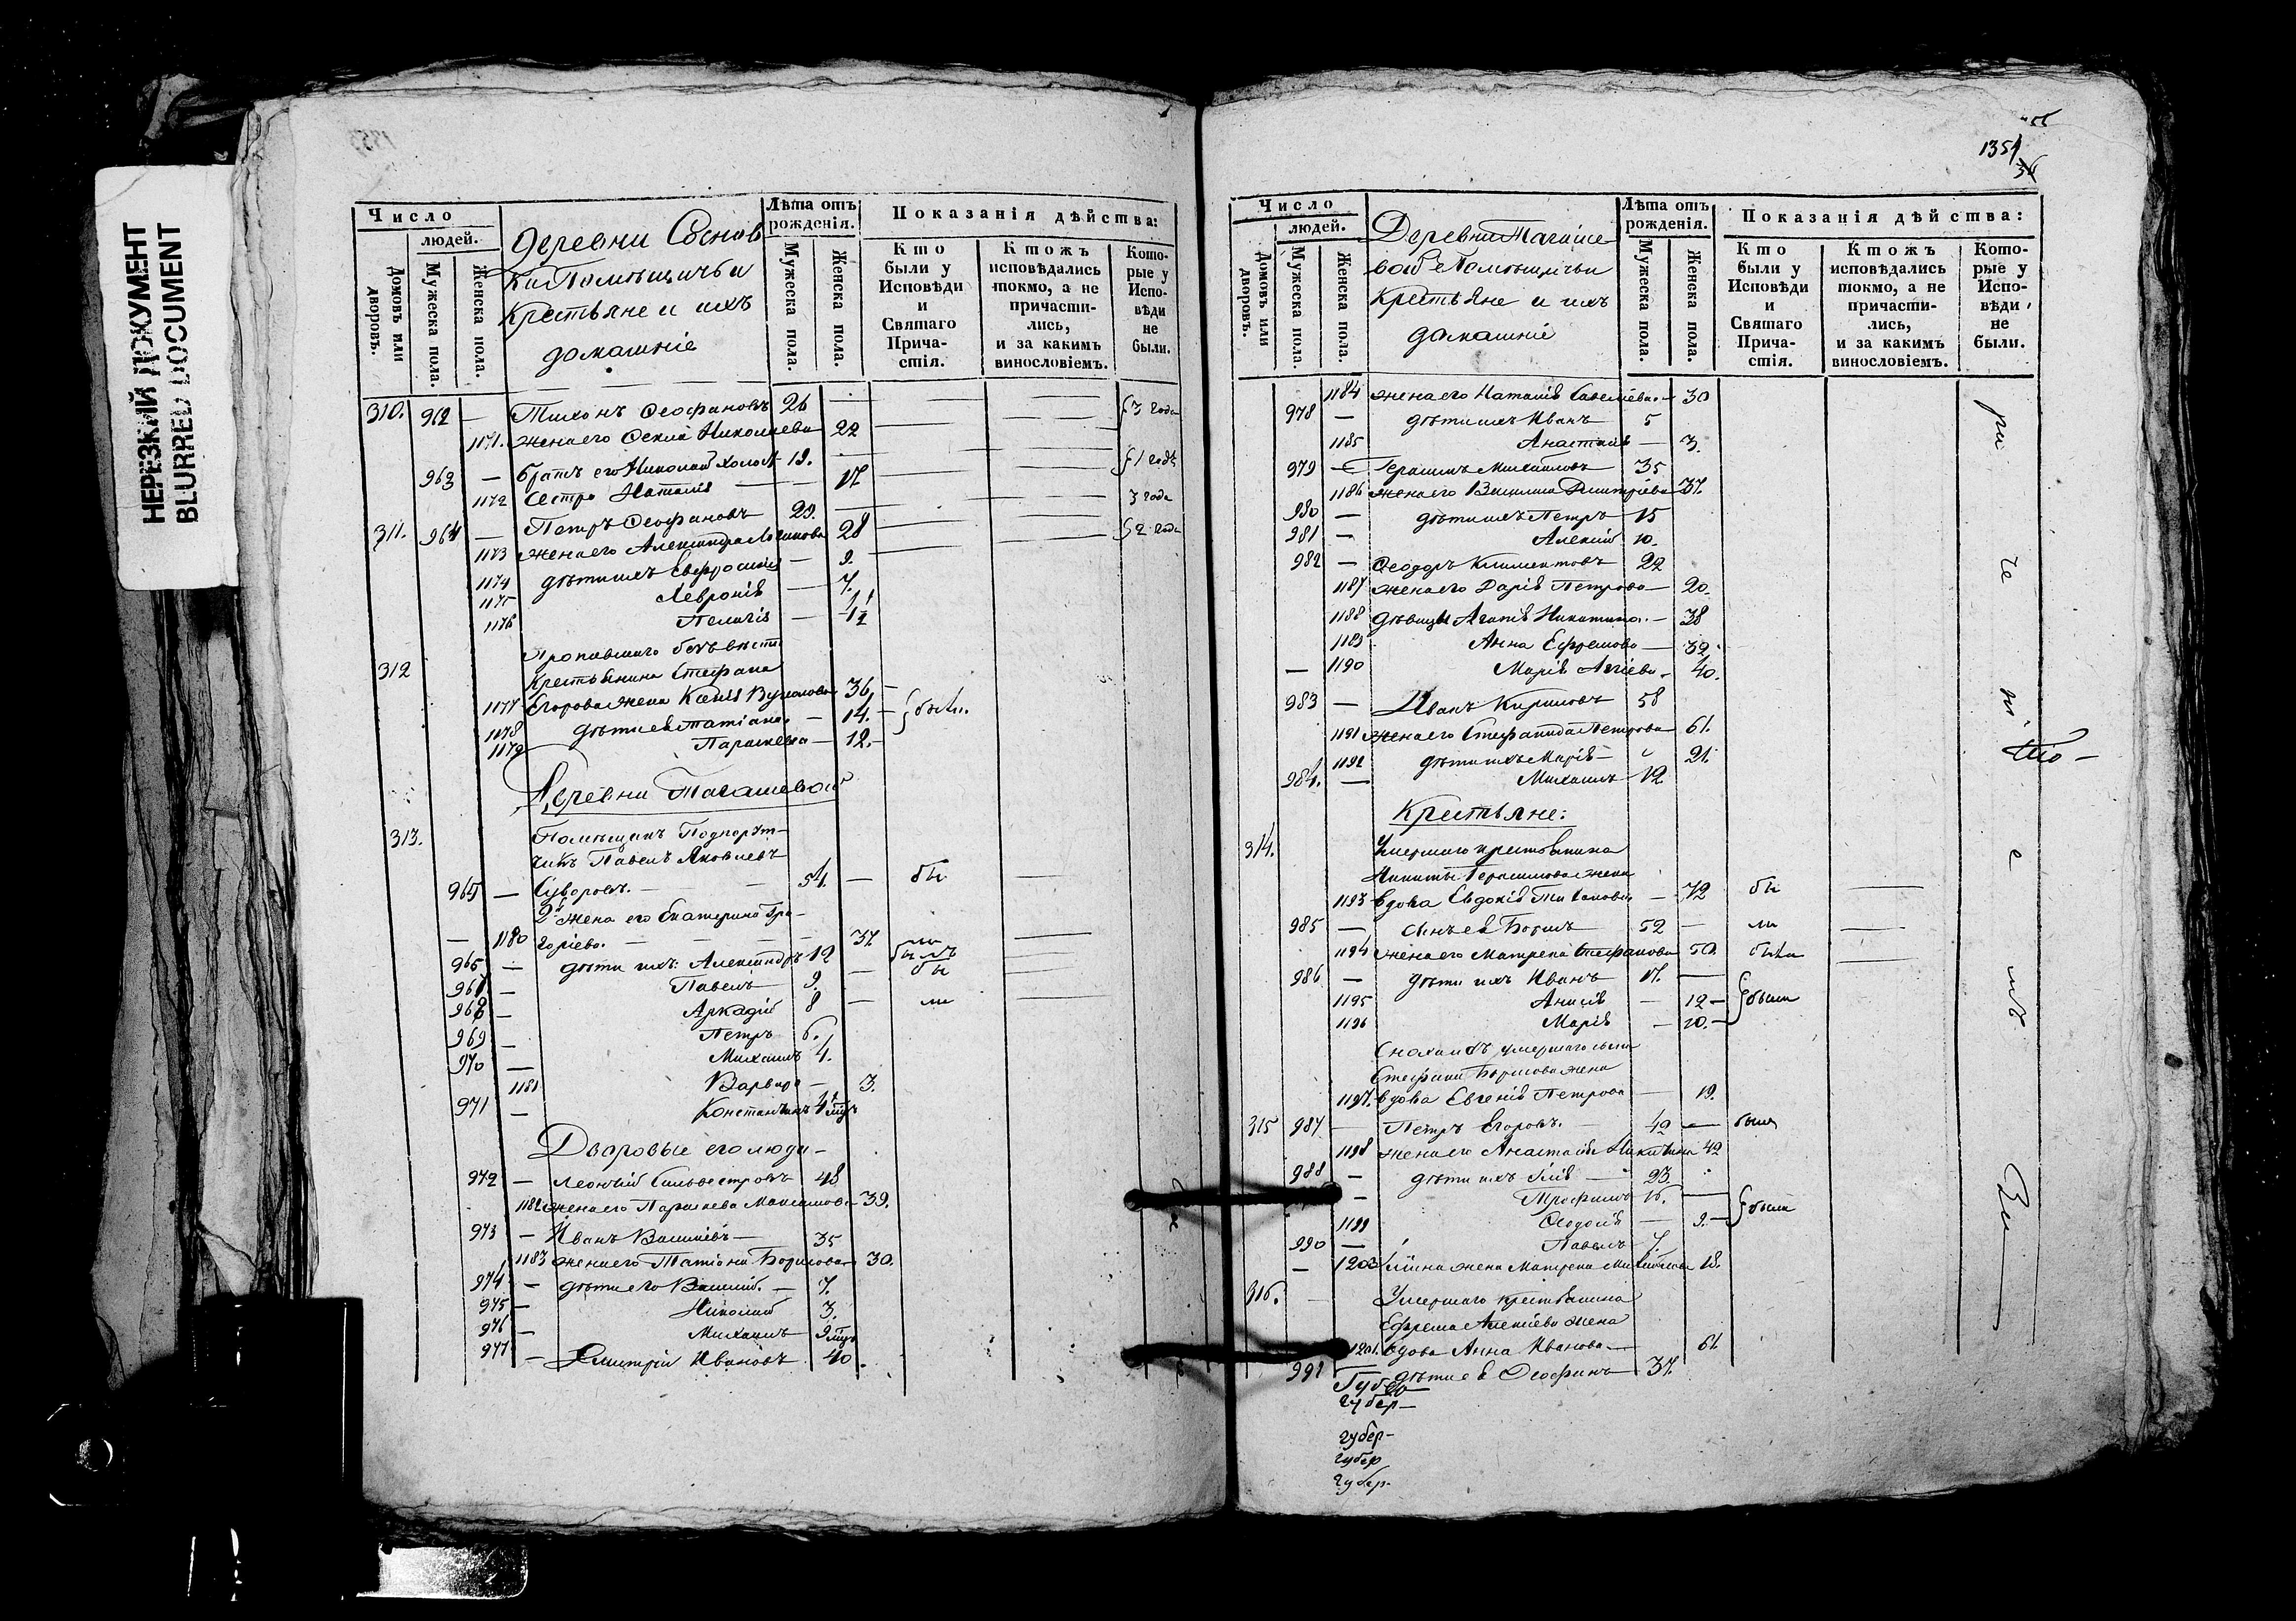 НЕРЕЗКИЙ ДОКУМЕНТ
BLURRED DOCUMENT
Число
людей.
Домовъ или дворовъ.
Мужеска пола.
Женска пола.
Деревни Соснов
ки Помѣщичьи
Крестьяне и ихъ
домашніе
Лѣта отъ рожденія.
Мужеска пола.
Женска пола.
Показанія дѣйства:
Кто были у Исповѣди и Святаго Причастія.
Ктожъ исповѣдались токмо, а не причастились, и за какимъ винословіемъ.
Которые у Исповѣди не были.
310. 962 — Тихонъ Ѳеофановъ 26 3 года
1171. жена его Ѳекла Николаева 22
963 — братъ его Николай холостъ 19. 1 годъ
1172 Сестра Наталія — 17 3 года
311. 964 — Петръ Ѳеофановъ 29. 2 года
1173 жена его Александра Логинова 28
1174 дѣти ихъ Евфросинія — 9.
1175 Февронія — 7.
1176 Пелагія —
312 Пропавшаго безъ вѣсти
Крестьянина Стефана
1177 Егорова жена 36
1178 дѣти ея Татіана — 14. — были.
1179 Параскева — 12. —
Деревни Тагашевой
313. Помѣщикъ Подпорут-
чикъ Павелъ Яковлевъ
965 — Суворовъ. — 54. — бы
2я жена его Екатерина Гри-
— 1180 горіева. — 37 ли
965 — дѣти ихъ: Александръ 12 былъ
967 — Павелъ 9. — бы
968 — Аркадій 8 — ли
969 — Петръ 6.
970 — Михаилъ 4.
1181 Варвара — 3.
971 — Константинъ
Дворовые его люди —
972 — Леонтій Сильвестровъ 48
1182 жена его Параскева Максимова 39.
973 — Иванъ Василіевъ — 35
1183 жена его Татіана Борисова 30.
974 — дѣти его Василій. — 7.
975 — Николай 3.
976 — Михаилъ
977 — Димитрій Ивановъ 40.
1351
Число
людей.
Домовъ или дворовъ.
Мужеска пола.
Женска пола.
Деревни Тагаше
вой Помѣщичьи
Крестьяне и ихъ
домашніе
Лѣта отъ рожденія.
Мужеска пола.
Женска пола.
Показанія дѣйства:
Кто были у Исповѣди и Святаго Причастія.
Ктожъ исповѣдались токмо, а не причастились, и за какимъ винословіемъ.
Которые у Исповѣди не были.
1184 жена его Наталія Савеліева — 30
978 — дѣти ихъ Иванъ 5
1185 Анастасія — 3.
979 — Герасимъ Михайловъ 35
1186 жена его Василиса Димитріева 37.
980 — дѣти ихъ Петръ 15
981 — Алексій 10.
982 — Ѳеодоръ Климентовъ 22
1187 жена его Дарія Петрова — 20.
1188 дѣвицы Агафія Никитина. — 38
1189 Анна Ефремова — 32.
— 1190 Марія — 40.
983 — Иванъ Кириловъ 58
1191 жена его Стефанида Петрова 61.
1192 дѣти ихъ Марія — 21.
984. — Михаилъ 12
Крестьяне:
314. Умершаго крестьянина
Никиты Герасимова жена
1193 вдова Евдокія — 72 бы
985 — сынъ ея Борисъ 52 — ли
1194 жена его Матрена Стефанова 50. была
986 — дѣти ихъ Иванъ 17. —
1195 Анисія — 12 — были
1196 Марія — 10. —
Сноха ихъ умершаго сына
Стефана Борисова жена
1197. вдова Евгенія Петрова — 19.
315 987 — Петръ Егоровъ. — 42 — были
1198 жена его Анастасія Никитина 42
988 — дѣти ихъ Илія — 23.
— Трофимъ 16. — были
1199 Ѳеодосія — 9. —
990 — Павелъ 7.
— 1200 Иліина жена Матрена Михайлова 18.
316. Умершаго крестьянина
Ефрема Алексіева жена
1201. вдова Анна Иванова — 61
991 — дѣти ея Ѳеофанъ — 37.
губер —
губер-
губер
губер-